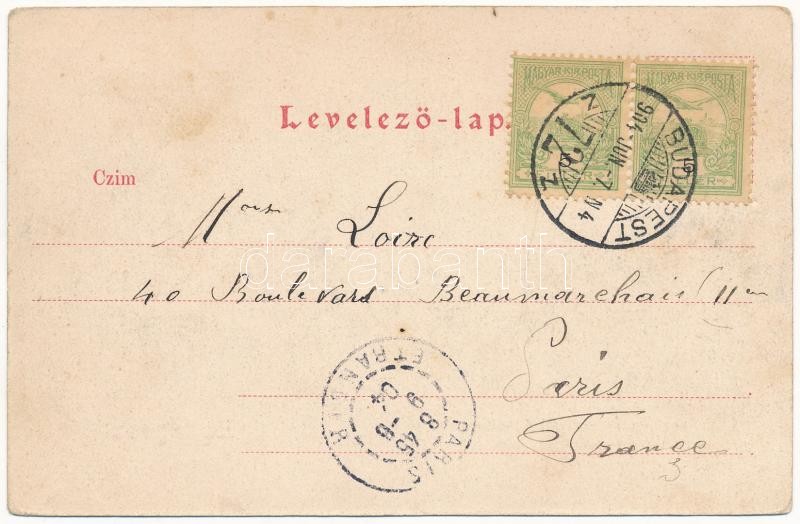 MAGYAR·KIR·POSTA MAGYAR·KIR·POSTA
Levelező-lap.
BUDAPEST
904 JUN -7 N 4
72
Czim
Loire
40 Boulevars Beaumarchais 11em
Paris
France
PARIS
ETRANGER
8 45
9 -6
04
darabanth